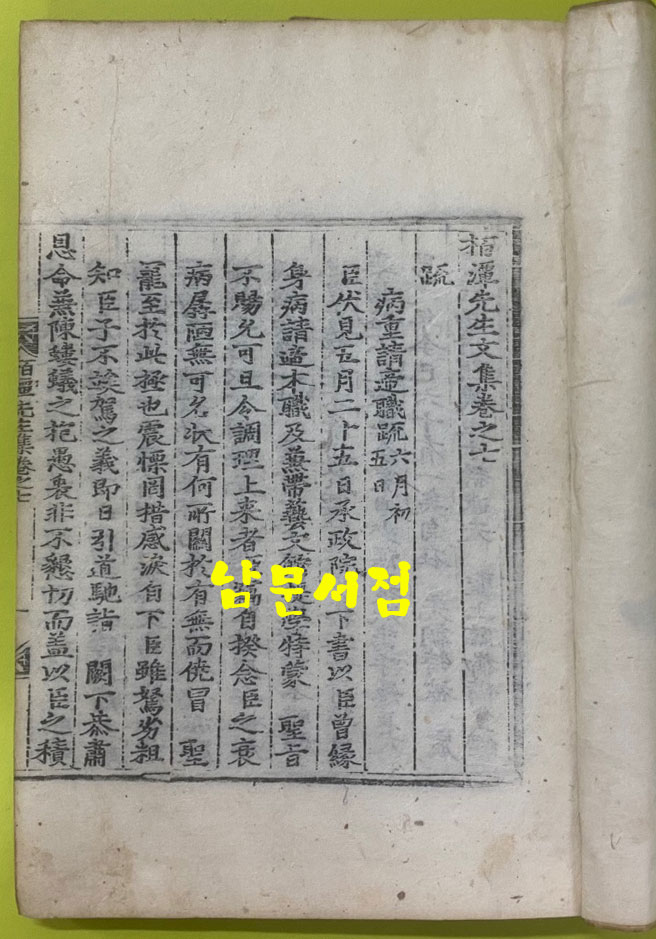 栢潭先生文集卷之七
疏
病重請遞職疏 六月初五日
臣伏見五月二十五日承政院 下書以臣曾緣
身病請遞本職及兼帶藝文館 特蒙 聖旨
不賜允可且令調理上來者 竊自揆念臣之衰
病孱陋無可名狀有何所關於有無而僥冒 聖
寵至於此極也震慄罔措感淚自下臣雖駑劣粗
知臣子不俟駕之義即日引道馳詣 闕下恭肅
恩命兼陳螻蟻之抱愚衷非不懇切而盖以臣之積
栢潭先生集卷之七
남문서점